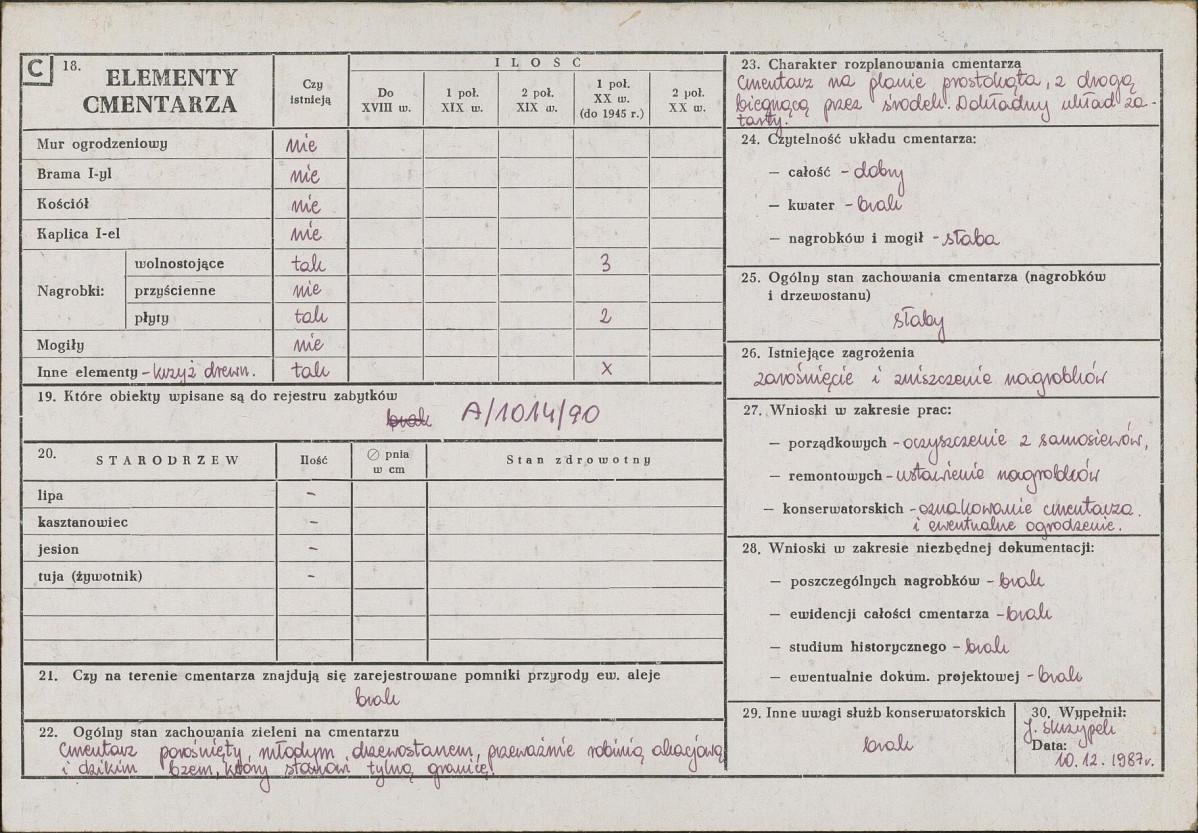 C 18. ELEMENTY CMENTARZA
Czy istnieją
ILOŚĆ
Do XVIII w.
1 poł. XIX w.
2 poł. XIX w.
1 poł. XX w. (do 1945 r.)
2 poł. XX w.
Mur ogrodzeniowy nie
Brama I-yl nie
Kościół nie
Kaplica I-el nie
Nagrobki:
wolnostojące tak 3
przyścienne nie
płyty tak 2
Mogiły nie
Inne elementy - krzyż drewn. tak x
19. Które obiekty wpisane są do rejestru zabytków
brak A/1014/90
20. STARODRZEW
Ilość
∅ pnia w cm
Stan zdrowotny
lipa -
kasztanowiec -
jesion -
tuja (żywotnik) -
21. Czy na terenie cmentarza znajdują się zarejestrowane pomniki przyrody ew. aleje
brak
22. Ogólny stan zachowania zieleni na cmentarzu
Cmentarz porośnięty młodym drzewostanem, przeważnie robinią akacjową
i dzikim bzem, który stanowi tylną granicę.
23. Charakter rozplanowania cmentarza
Cmentarz na planie prostokąta, z drogą
biegnącą przez środek. Dokładny układ za-
tarty.
24. Czytelność układu cmentarza:
— całość - dobry
— kwater - brak
— nagrobków i mogił - słaba
25. Ogólny stan zachowania cmentarza (nagrobków
i drzewostanu)
słaby
26. Istniejące zagrożenia
zarośnięcie i zniszczenie nagrobków
27. Wnioski w zakresie prac:
— porządkowych - oczyszczenie z samosiewów,
— remontowych - ustawienie nagrobków
— konserwatorskich - oznakowanie cmentarza
i ewentualne ogrodzenie.
28. Wnioski w zakresie niezbędnej dokumentacji:
— poszczególnych nagrobków - brak
— ewidencji całości cmentarza - brak
— studium historycznego - brak
— ewentualnie dokum. projektowej - brak
29. Inne uwagi służb konserwatorskich
brak
30. Wypełnił:
J. Skrzypek
Data:
10.12.1987r.